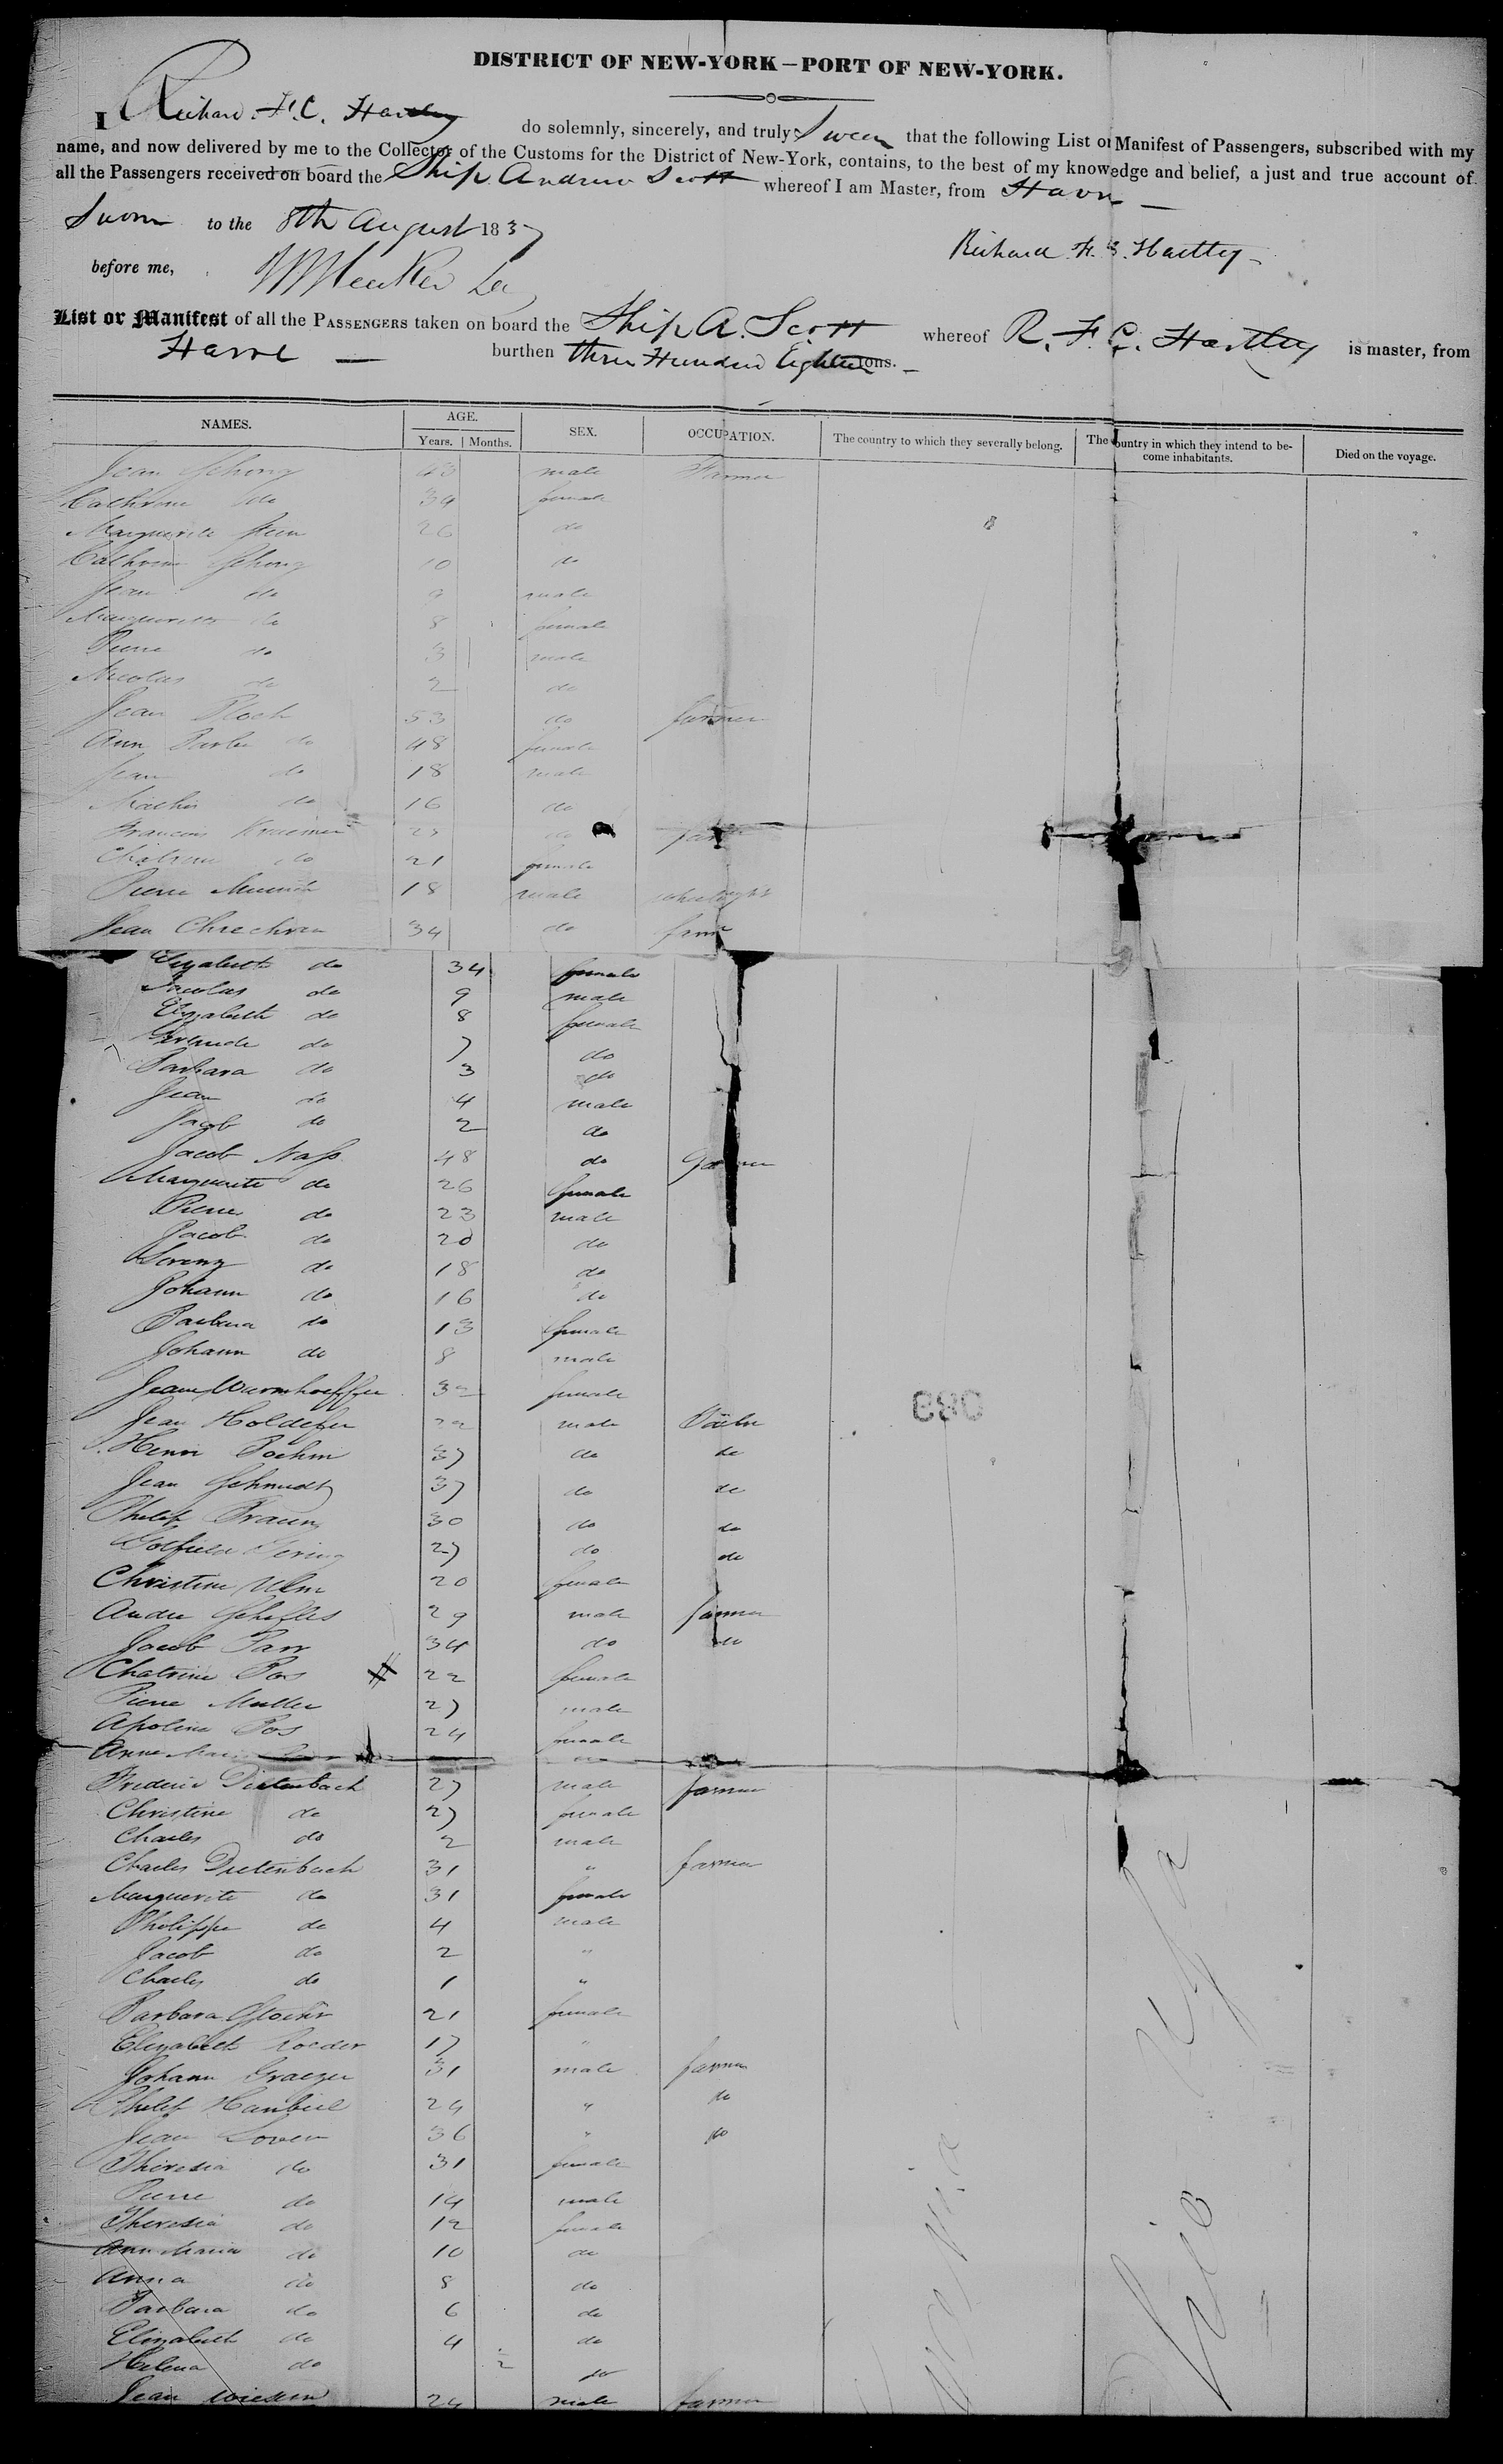 DISTRICT OF NEW-YORK—PORT OF NEW-YORK.
I Richard F. C. Hartley do solemnly, sincerely, and truly Swear that the following List or Manifest of Passengers, subscribed with my
name, and now delivered by me to the Collector of the Customs for the District of New-York, contains, to the best of my knowledge and belief, a just and true account of
all the Passengers received on board the Ship Andrew Scott whereof I am Master, from Havre
Sworn to the 8th August 1837
Richard F. C. Hartley
before me,
List or Manifest of all the PASSENGERS taken on board the Ship A. Scott whereof R. F. C. Hartley is master, from
Havre burthen three Hundred Eighteen tons.
NAMES. AGE. Years. Months. SEX. OCCUPATION. The country to which they severally belong. The country in which they intend to become inhabitants. Died on the voyage.
Jean 43 male Farmer
Cathrine do 34 female
Marguerite 26 do
Cathrine 10 do
Jean do 9 male
Marguerite do 8 female
Pierre do 3 male
Nicolas do 2 do
Jean Bloch 53 do farmer
Ann do 48 female
Jean do 18 male
Mathis do 16 do
Francois Kraemer
do 21 female
Pierre 18 male
Jean 34 do
Elizabeth do 34 female
Nicolas do 9 male
Elizabeth do 8 female
do 7 do
Barbara do 3 do
Jean do 4 male
Jacob do 2 do
Jacob Nass 48 do
Marguerite do 26 female
Pierre do 23 male
Jacob do 20 do
Lorenz do 18 do
Johann do 16 do
Barbara do 13 female
Johann do 8 male
female
Jean Holdefer 22 male
Henri Boehm 37 do do
Jean Schmidt 37 do do
Philip Braun 30 do do
27 do do
Christine Ulm 20 female
Andre 29 male farmer
Jacob Parr 34 do do
Chatrine Pos 22 female
Pierre Muller 27 male
Apoline Pos 24 female
Anne
Frederic Dietenbach 27 male farmer
Christine do 27 female
Charles do 2 male
Charles Dietenbach 31 " farmer
Marguerite do 31 female
Philippe do 4 male
Jacob do 2 "
Charles do 1 "
Barbara 21 female
Elizabeth Roeder 17 "
Johann Graezer 31 male farmer
Philip 24 " do
Jean Lover 36 " do
Theresia do 31 female
Pierre do 14 male
Theresia do 12 female
Ann Maria do 10 do
Anna do 8 do
Barbara do 6 do
Elizabeth do 4 do
Helena do 2 do
Jean 24 male farmer